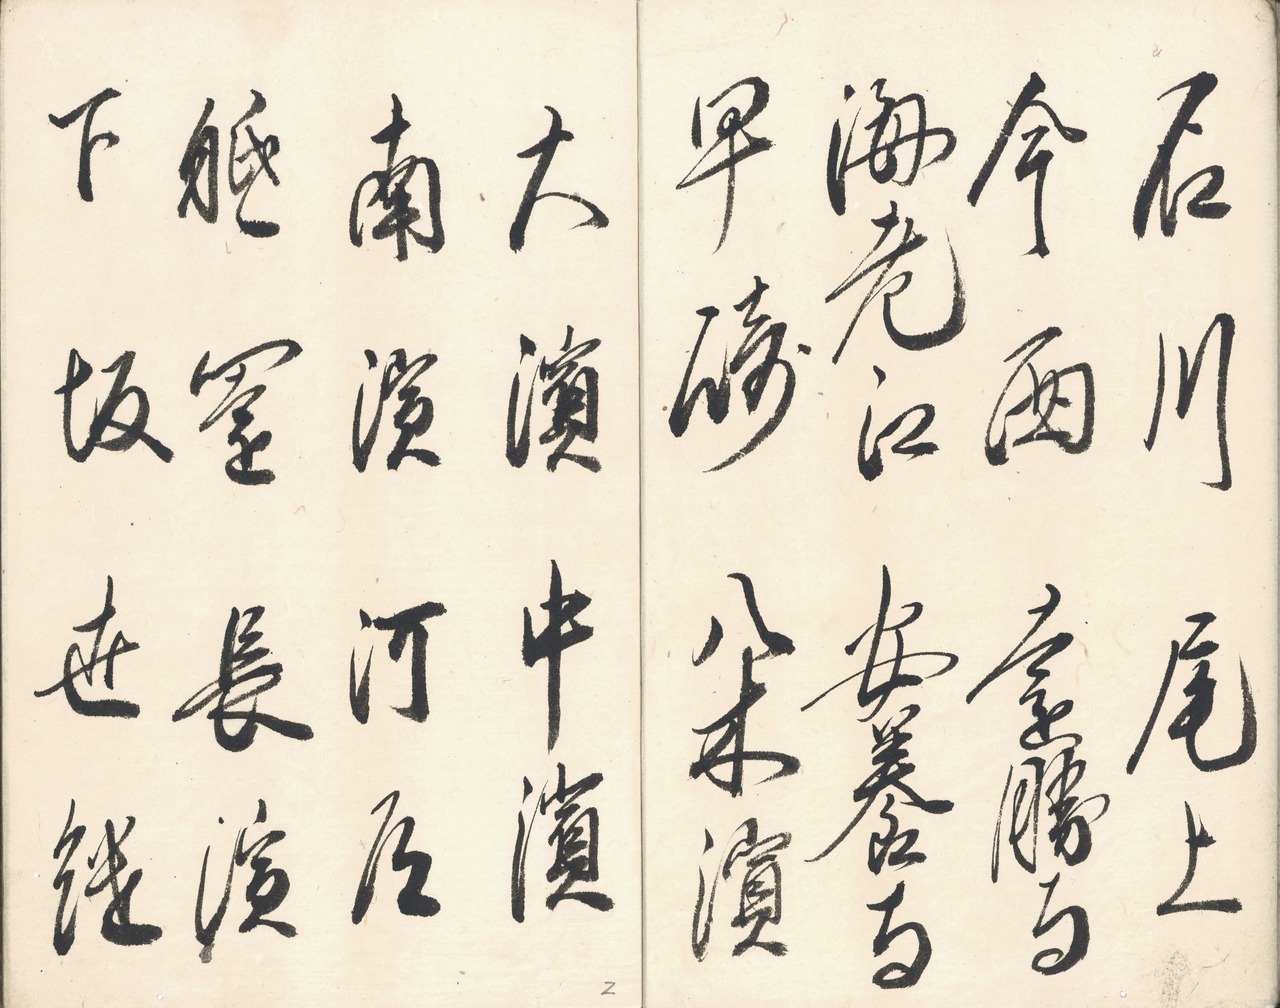 石川　尾上
今西　延勝寺
海老江　安養寺
早碕　八木濱
大濱　中濱
南濱　河道
祇園　長濱
下坂　世継